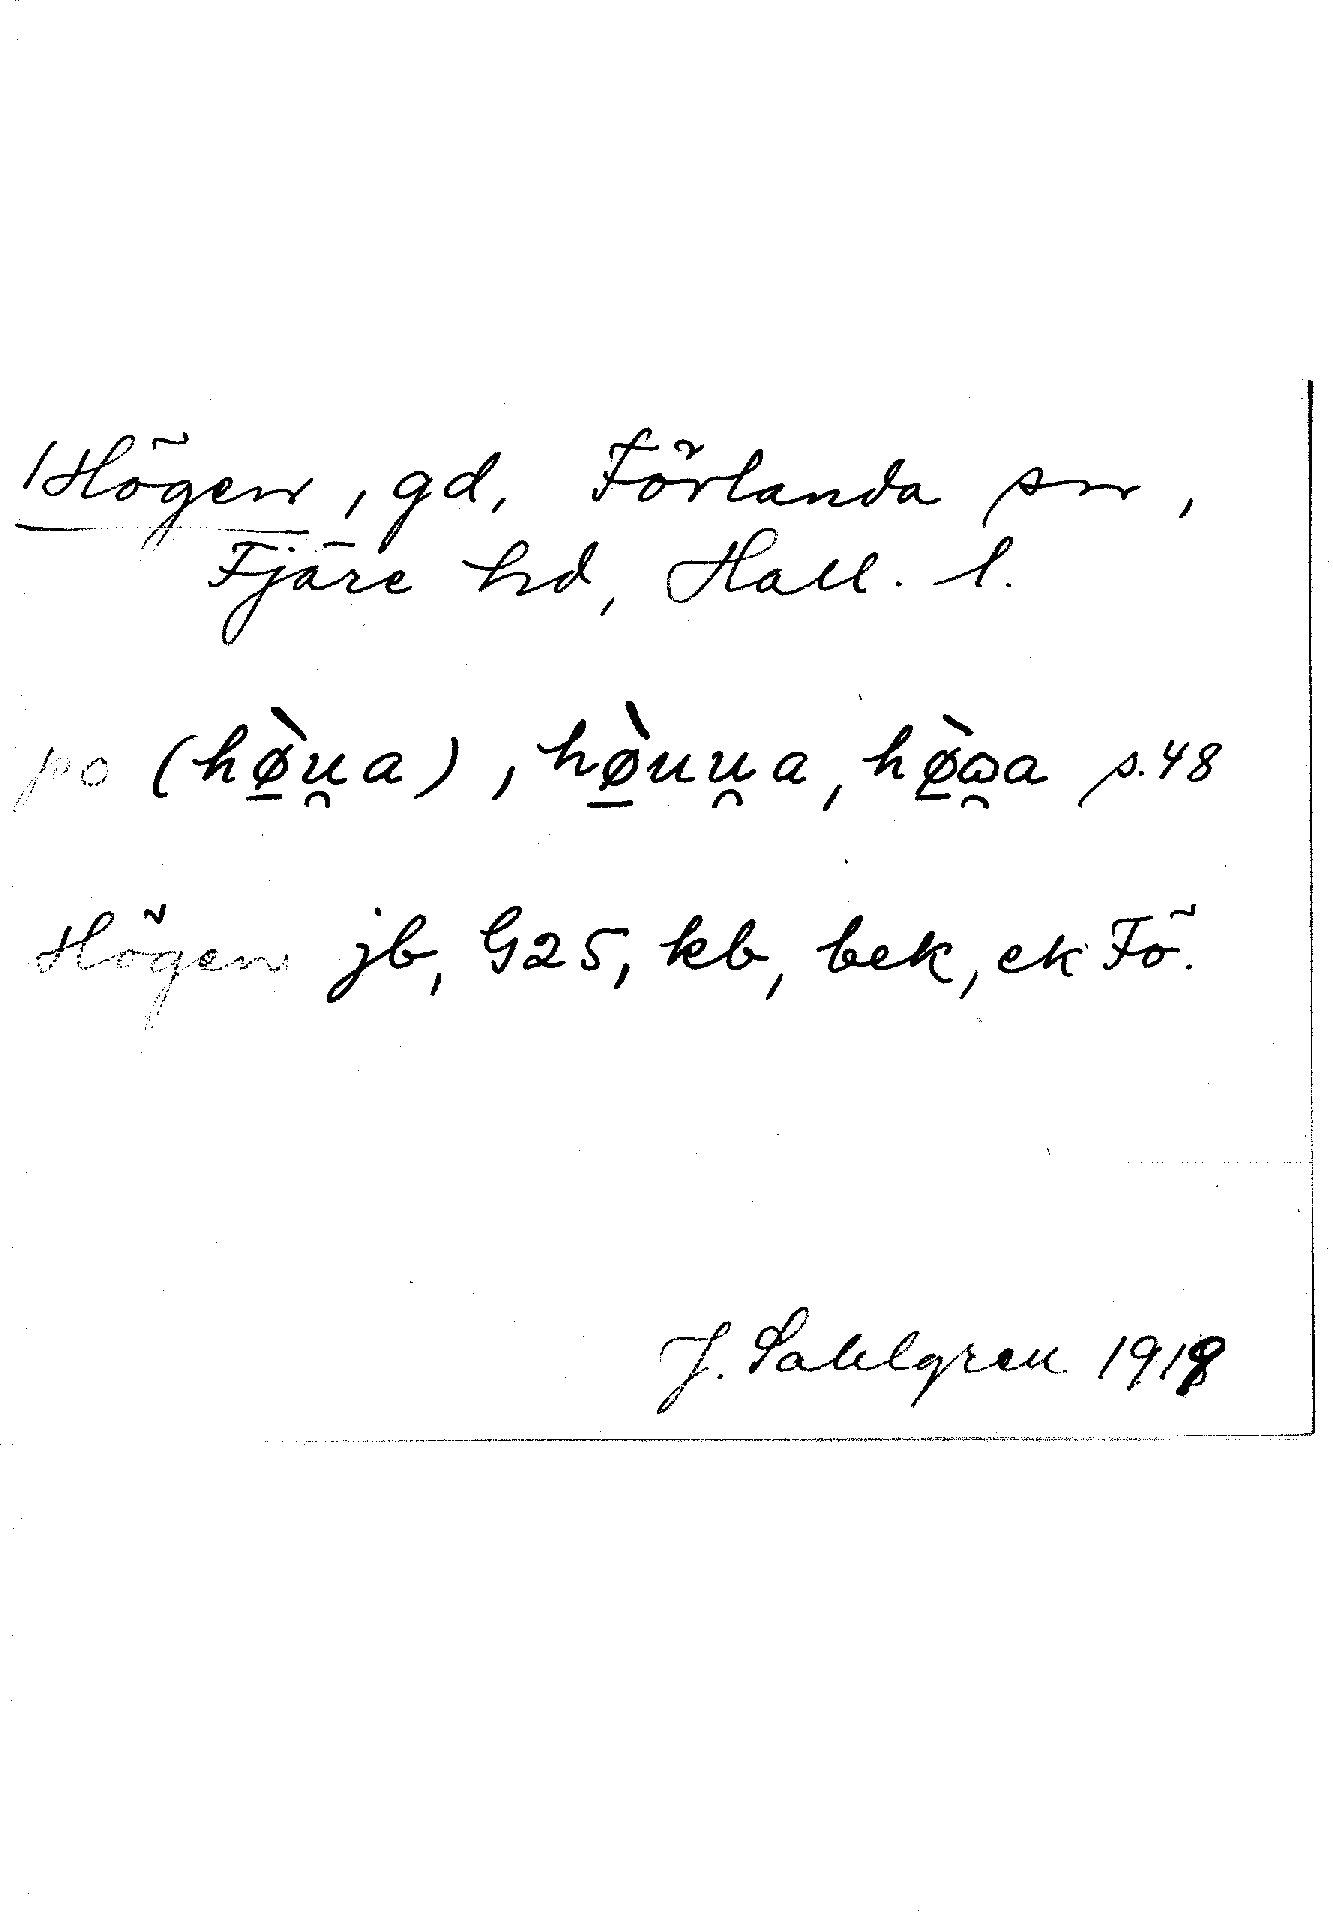 Högen, gd, Förlanda sn,
Fjäre hd, Hall. l.
po (hø̠̀u̯a), hø̠̀uu̯a, hø̠̀ɷ̯a s. 48
Högen jb, G25, kb, bek, ek Fö.
J. Sahlgren 1918